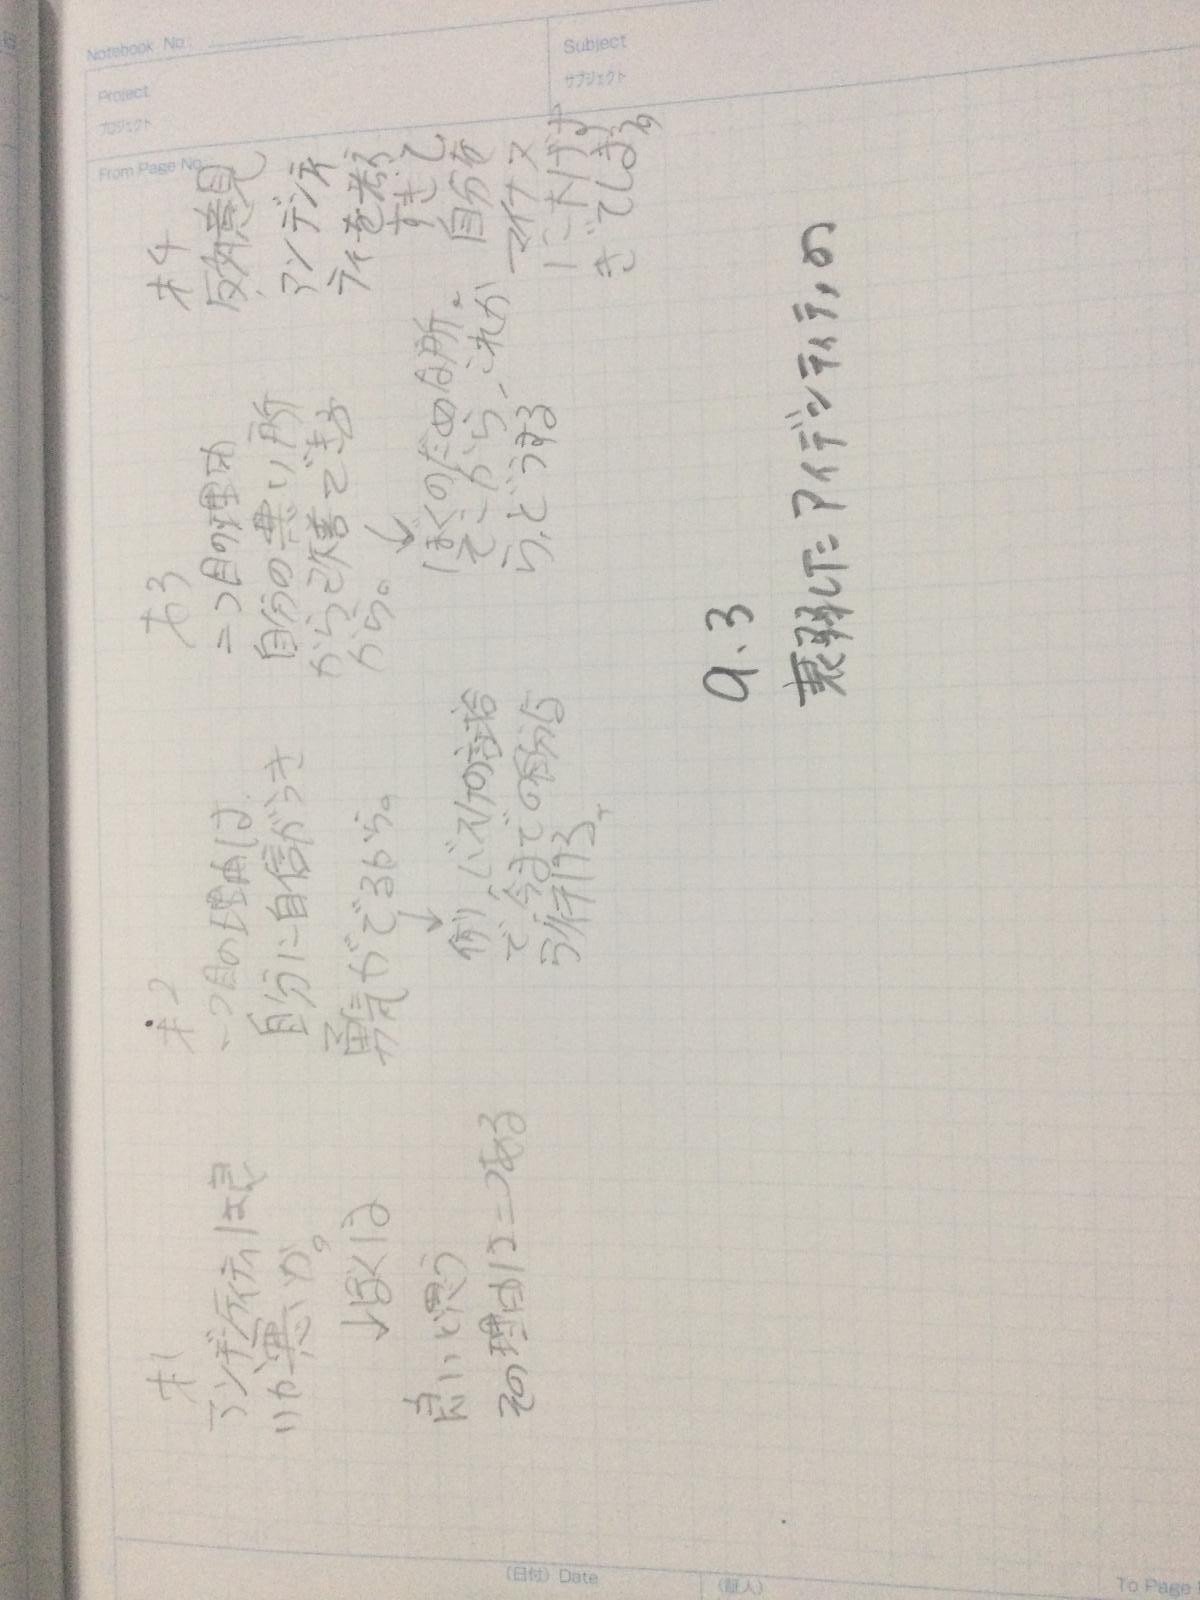 Notebook No.
Project
プロジェクト
From Page No.
Subject
サブジェクト
#1
アンデンティティは良
いか悪いか。
↓ぼくは
良いと思う
その理由は二つある
#2
一つ目の理由は
自分に自信がつき
勇気がでるから。
↓
例、バスケの試合
で、今までの自分な
ら行ける。
#3
二つ目の理由
自分の悪い所
からで改善できる
から。
↓
ぼくのだめな所。
そこから、これか
ら、どうする
#4
反対意見
アンデンティ
ティを考え
すぎて
自分を
マイナス
に下げす
ぎてしまう
9.3
表現したアイデンティティの
(日付) Date
(証人)
To Page